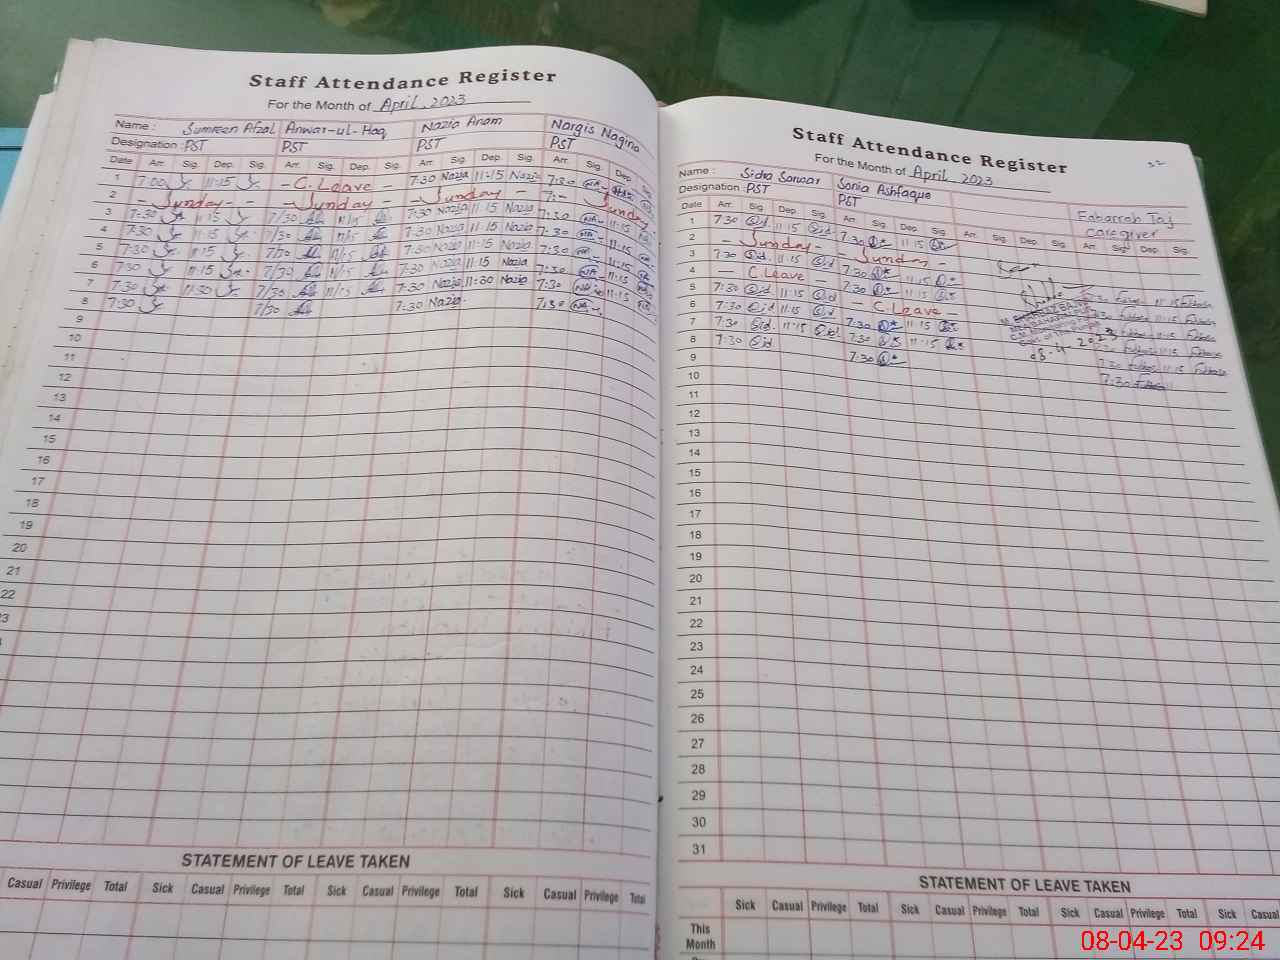 Staff Attendance Register
For the Month of April, 2023
Name: Sumreen Afzal Anwar-ul-Haq Nazia Anam Nargis Nagina
Designation: PST PST PST PST
Date Arr. Sig. Dep. Sig. Arr. Sig. Dep. Sig. Arr. Sig. Dep. Sig. Arr. Sig. Dep. Sig.
1 7:00 11:15 - C. Leave - 7:30 Nazia 11:15 Nazia 7:30
2 - Sunday - - Sunday - - Sunday - Sunday
3 7:30 11:15 7/30 11/15 7:30 Nazia 11:15 Nazia 7:30 11:15
4 7:30 11:15 7/30 11/15 7:30 Nazia 11:15 Nazia 7:30 11:15
5 7:30 11:15 7/30 11/15 7:30 Nazia 11:15 Nazia 7:30 11:15
6 7:30 11:15 7/30 11/15 7:30 Nazia 11:15 Nazia 7:30 11:15
7 7:30 11:30 7/30 11/15 7:30 Nazia 11:30 Nazia 7:30 11:15
8 7:30 7/30 7:30 Nazia 7:30
9
10
11
12
13
14
15
16
17
18
19
20
21
22
STATEMENT OF LEAVE TAKEN
Casual Privilege Total Sick Casual Privilege Total Sick Casual Privilege Total Sick Casual Privilege Total
Staff Attendance Register
For the Month of April 2023
Name: Sidra Sarwar Sonia Ashfaque
Designation: PST PST
Fakharrah Taj
Caregiver
Date Arr. Sig. Dep. Sig. Arr. Sig. Dep. Sig. Arr. Sig. Dep. Sig. Arr. Sig. Dep. Sig.
1 7:30 Sid 11:15 Sid 7:30 11:15
2 - Sunday - - Sunday -
3 7:30 Sid 11:15 Sid 7:30 11:15
4 - C Leave 7:30 11:15
5 7:30 Sid 11:15 Sid - C Leave -
6 7:30 Sid 11:15 Sid 7:30 11:15
7 7:30 Sid 11:15 Sid 7:30 11:15
8 7:30 Sid 7:30
08.4.2023
9
10
11
12
13
14
15
16
17
18
19
20
21
22
23
24
25
26
27
28
29
30
31
STATEMENT OF LEAVE TAKEN
Sick Casual Privilege Total Sick Casual Privilege Total Sick Casual Privilege Total Sick Casual
This
Month
08-04-23 09:24